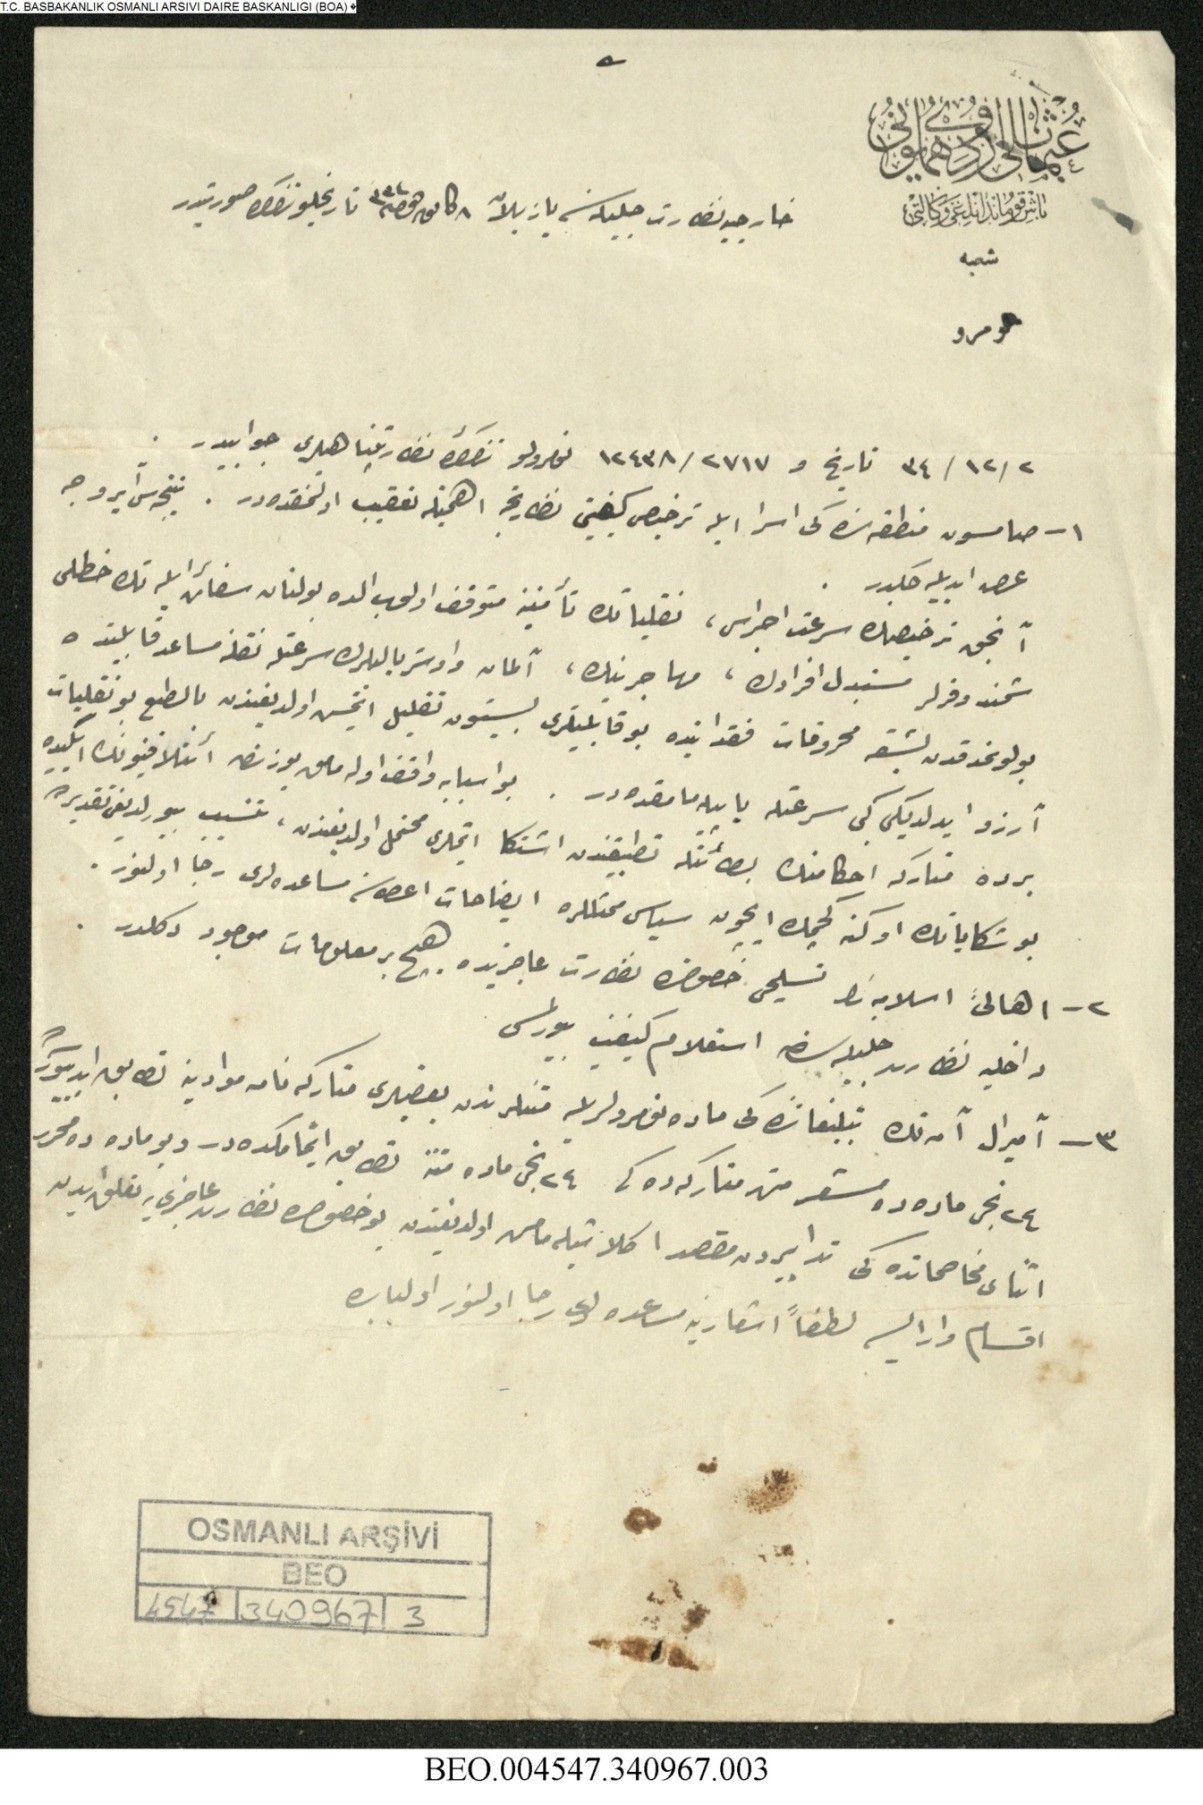 T.C. BASBAKANLIK OSMANLI ARSIVI DAIRE BASKANLIGI (BOA)
عثمانلی اردوی همایونی
باش قوماندانلغی وكالتی
شعبه
نومرو
خارجیه نظارت جلیله سنه یازیلان ٨ كانون ٣٣٤ تاریخلو تذكره صورتیدر
٣٤/١٢/٢ تاریخ و ١٢٤٣٨/٢٧١٧ نومرولو تذكرهٔ نظارتپناهیلری جوابیدر .
١- صامسون منطقه سنده كی اسرا ایله ترخیص كیفیتی نظارتجه اهمیتله تعقیب اولنمقده در . نتیجه سی آیروجه
عرض ایدیله جكدر .
آنجق ترخیصك سرعت اجراسی ، نقلیاتك تأمیننه متوقف اولوب الده بولنان سفائن ایله تك خطلی
شمندوفرلر مستبدل افرادك ، مهاجرینك ، آلمان و اوستریالیلرك سرعتله نقلنه مساعد قابلیتده
بولونمدقدن بشقه محروقات فقدانیده بو قابلیتلری بسبتون تقلیل ایتمش اولدیغندن بالطبع بو نقلیات
آرزو ایدلدیكی كبی سرعتله یاپیله مامقده در . بو اسبابه واقف اوله مامق یوزندن ائتلافیونك ایكیده
برده متاركه احكامنك بطائتله تطبیقندن اشتكا ایتملری محتمل اولدیغندن ، تنسیب بیورلدیغی تقدیرده
بو شكایاتك اوكنه كچمك ایچون سیاسی ممثللره ایضاحات اعطاسنه مساعده لری رجا اولنور .
٢- اهالیٔ اسلامیه نك تسلیحی خصوصنده نظارت عاجزیده هیچ بر معلومات موجود دكلدر .
داخلیه نظارت جلیله سندن استعلام كیفیت بیورلمسی
٣- آمیرال آمه تك تبلیغاتنده كی ماده نومرولریله متنلرندن بعضیلری متاركه نامه موادینه تطابق ایتمیور
٢٤ نجی ماده ده مشعر متن متاركه ده كی ٢٤ نجی ماده متننه تطابق ایتمامكده در و بو ماده ده محرر
اثنای مخاصماتده كی تدابیردن مقصد اكلاشیله مامش اولدیغندن بو خصوصده نظارت عاجزی یه تعلق ایدن
اقسام وار ایسه لطفاً اشعارینه مساعده لری رجا اولنور اولبابده
OSMANLI ARŞİVİ
BEO
4547 340967 3
BEO.004547.340967.003